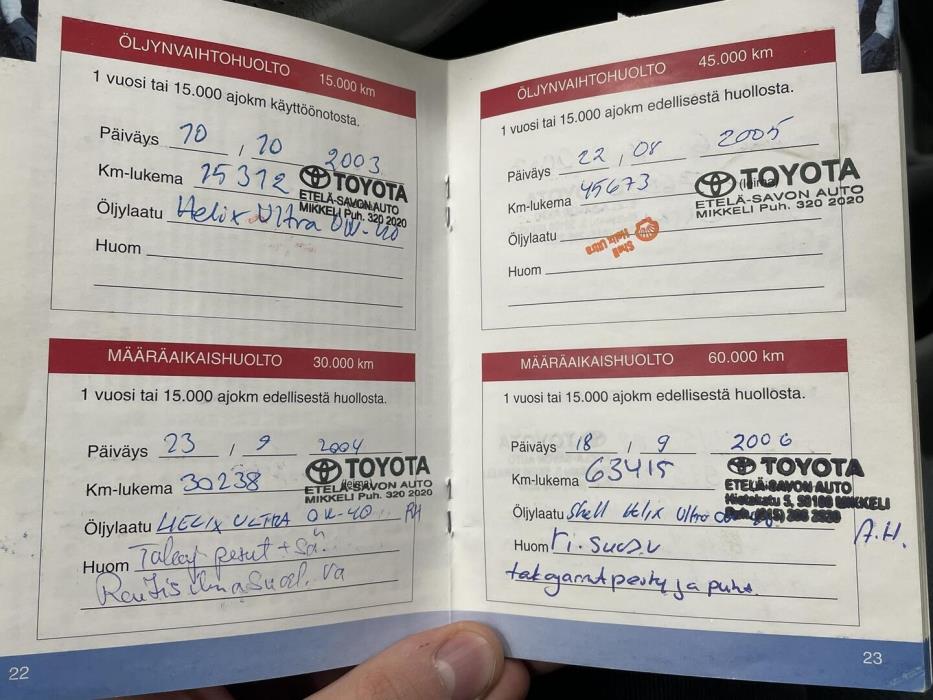 ÖLJYNVAIHTOHUOLTO 15.000 km
1 vuosi tai 15.000 ajokm käyttöönotosta.
Päiväys 10 / 10 2003
Km-lukema 15312
TOYOTA
ETELÄ-SAVON AUTO
MIKKELI Puh. 320 2020
Öljylaatu Helix Ultra 0W-40
Huom
MÄÄRÄAIKAISHUOLTO 30.000 km
1 vuosi tai 15.000 ajokm edellisestä huollosta.
Päiväys 23 / 9 2004
Km-lukema 30238
TOYOTA
(leima)
ETELÄ-SAVON AUTO
MIKKELI Puh. 320 2020
Öljylaatu HELIX ULTRA 0W-40 PH
Huom pesut +
22
ÖLJYNVAIHTOHUOLTO 45.000 km
1 vuosi tai 15.000 ajokm edellisestä huollosta.
Päiväys 22 / 08 2005
Km-lukema 45673
TOYOTA
(leima)
ETELÄ-SAVON AUTO
MIKKELI Puh. 320 2020
Öljylaatu Shell Helix Ultra
Huom
MÄÄRÄAIKAISHUOLTO 60.000 km
1 vuosi tai 15.000 ajokm edellisestä huollosta.
Päiväys 18 / 9 2006
Km-lukema 63415
TOYOTA
ETELÄ-SAVON AUTO
MIKKELI
Öljylaatu Shell Helix Ultra
A.H.
Huom ri.suod.v
takajarrut pesty ja puhd.
23